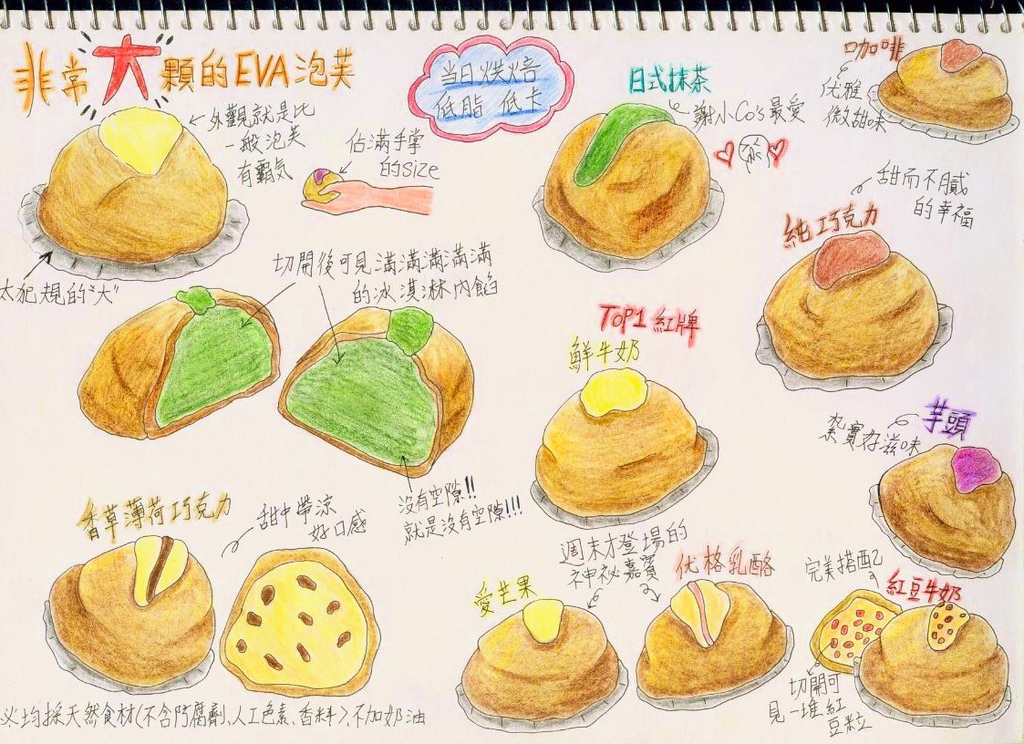 非常大顆的EVA泡芙
外觀就是比
一般泡芙
有霸氣
佔滿手掌
的size
太犯規的"大"
當日烘焙
低脂 低卡
日式抹茶
謝小Co's最愛
咖啡
优雅
微甜味
甜而不膩
的幸福
純巧克力
切開後可見滿滿滿滿滿
的冰淇淋內餡
沒有空隙!!
就是沒有空隙!!!
TOP1 紅牌
鮮牛奶
芋頭
紮實好滋味
香草薄荷巧克力
甜中帶涼
好口感
週末才登場的
神祕嘉賓
愛芒果
优格乳酪
完美搭配
紅豆牛奶
切開可
見一堆紅
豆粒
※均採天然食材(不含防腐劑、人工色素、香料)、不加奶油